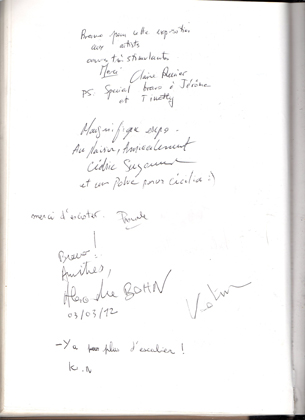 Bravo pour cette exposition
aux artists
très stimulante
Merci Claire
PS. Special bravo à Jérôme
et Timothy
Magnifique expo.
Au plaisir, Amicalement
Cédric Suzanne
et un pour Cécilia :)
merci d'exister.
Bravo!
Amitiés,
BOHN
03/03/12
- Y a pas plus d'escalier!
K.N